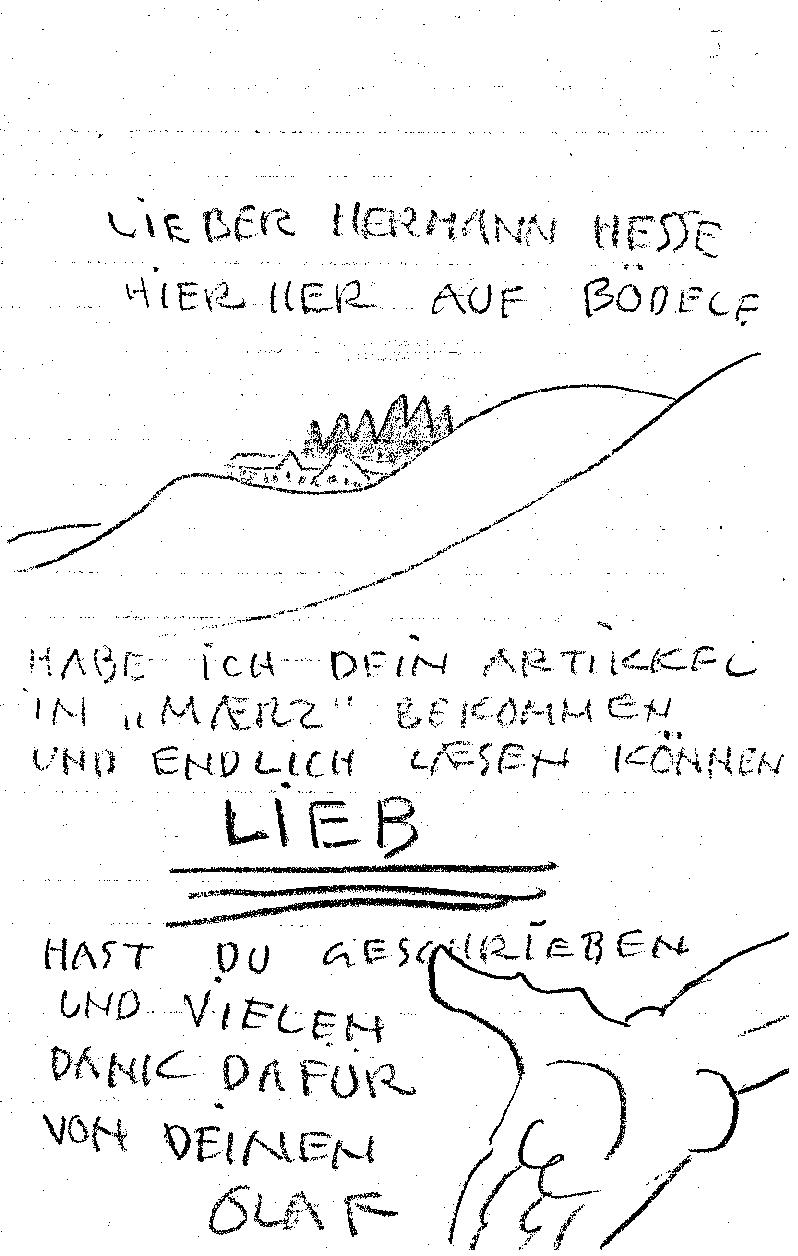 LIEBER HERMANN HESSE
HIERHER AUF BÖDELE
HABE ICH DEIN ARTIKKEL
IN „MÆRZ" BEKOMMEN
UND ENDLICH LÆSEN KÖNNEN
LIEB
HAST DU GESCHRIEBEN
UND VIELEN
DANK DAFÜR
VON DEINEN
OLAF